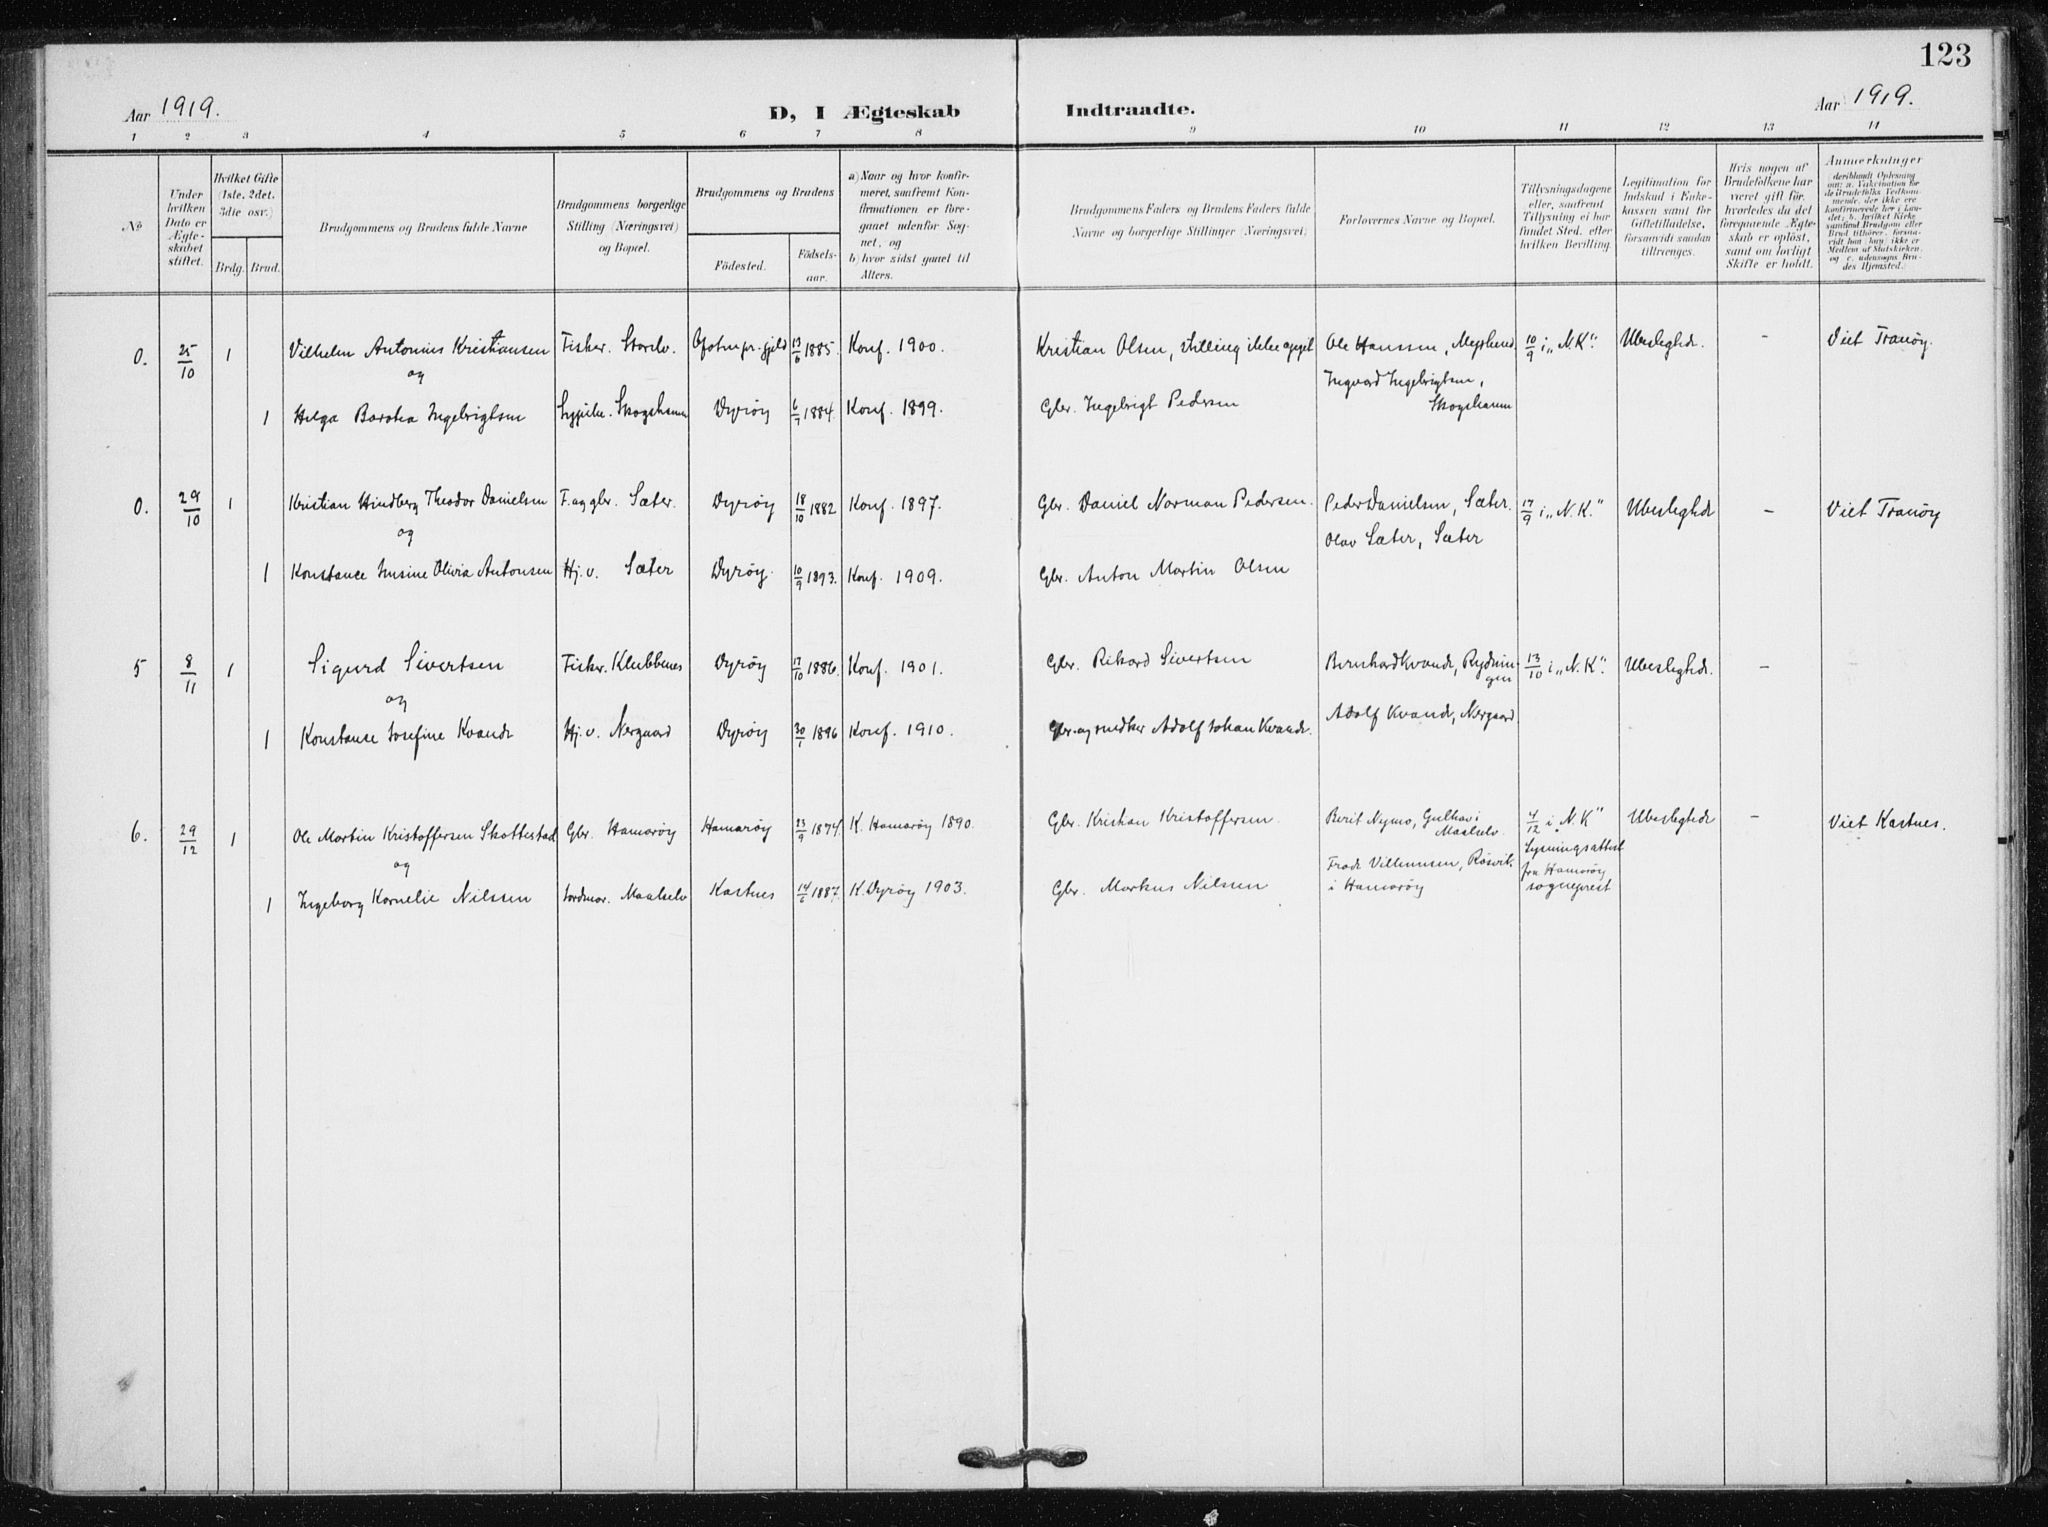 123
Aar 1919.
D, I Ægteskab Indtraadte.
Aar 1919.
1 2 3 4 5 6 7 8 9 10 11 12 13 14
No
Under hvilken Dato er Ægteskabet stiftet.
Hvilket Gifte (1ste, 2det, 3die osv.)
Brdg. Brud.
Brudgommens og Brudens fulde Navne
Brudgommens borgerlige Stilling (Næringsvei) og Bopæl.
Brudgommens og Brudens
Födested. Födselsaar.
a) Naar og hvor konfirmeret, saafremt Konfirmationen er foregaaet udenfor Sognet, og
b) hvor sidst gaaet til Alters.
Brudgommens Faders og Brudens Faders fulde Navne og borgerlige Stillinger (Næringsvei)
Forlovernes Navne og Bopæl.
Tillysningsdagene eller, saafremt Tillysning ei har fundet Sted, efter hvilken Bevilling.
Legitimation for Indskud i Enkekassen samt for Giftetilladelse, forsaavidt saadan tiltrænges.
Hvis nogen af Brudefolkene har været gift før, hvorledes da det foregaaende Ægteskab er oplöst, samt om lovligt Skifte er holdt.
Anmerkninger
0. 25/10 1 Vilhelm Antonius Kristiansen Fisker. Ofoten pr.gjeld 13/6 1885. Konf. 1900. Kristian Olsen, stilling ikke opgit Ole Hanssen, 10/9 i „N.K". Ubeslegtede. – Viet Tranöy.
og
Ingvard Ingebrigtsen, Skogshamn
1 Helga Barotea Ingebrigtsen Sypike. Skogshamn Dyröy 6/7 1884. Konf. 1899. Gbr. Ingebrigt Pedersen
0. 29/10 1 Kristian Hindberg Theodor Danielsen F. og gbr. Sæter. Dyröy 18/10 1882 Konf. 1897. Gbr. Daniel Norman Pedersen. Peder Danielsen, Sæter. 17/9 i „N.K." Ubeslegtede – Viet Tranöy
og
Olav Sæter, Sæter
1 Konstance Olivia Antonsen Hj.v. Sæter Dyröy. 10/9 1893. Konf. 1909. Gbr. Anton Martin Olsen
5 8/11 1 Sigurd Sivertsen Fisker. Klubbenes Dyröy 17/10 1886. Konf. 1901. Gbr. Rikard Sivertsen Bernhard Kvande, Rydningen 13/10 i „N.K". Ubeslegtede. –
og
Adolf Kvande, Nergaard
1 Konstanse Josefine Kvande Hj.v. Nergaard Dyröy 30/1 1896 Konf. 1910. Gbr. og smed Adolf Johan Kvande.
6. 29/12 1 Ole Martin Kristoffersen Skottestad Gbr. Hamaröy Hamaröy 23/9 1874 K. Hamaröy 1890. Gbr. Kristian Kristoffersen. Berit Nymo, Gulhav i Maalselv 4/12 i „N.K" Ubeslegtede – Viet Kastnes.
og
Frode Villumsen, Rösvik i Hamaröy
Lysningsattest fra Hamaröy sogneprest
1 Ingeborg Kornelie Nilssen Jordmor. Maalselv Kastnes 14/6 1887. K. Dyröy 1903. Gbr. Markus Nilsen